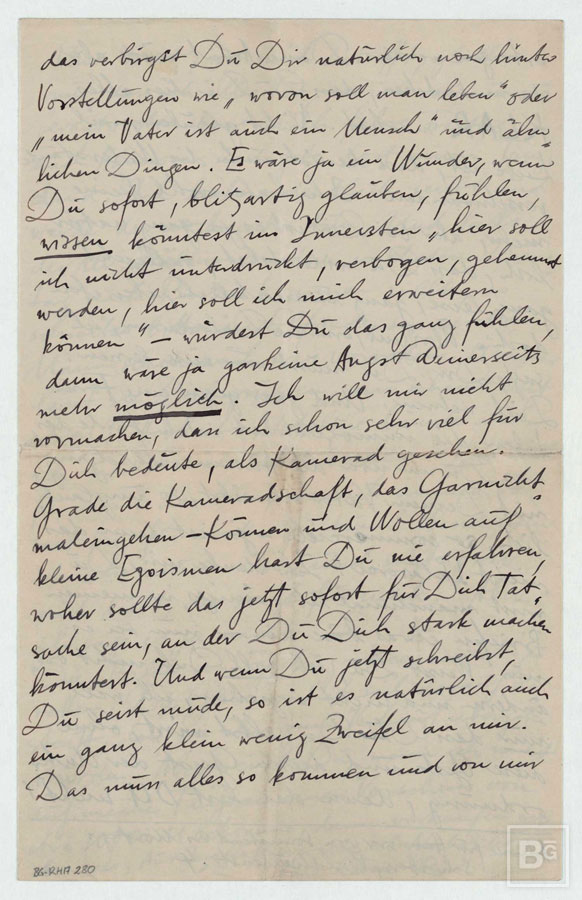 das verbirgst Du Dir natürlich noch hinter
Vorstellungen wie „wovon soll man leben" oder
„mein Vater ist auch ein Mensch" und ähn
lichen Dingen. Es wäre ja ein Wunder, wenn
Du sofort, blitzartig glauben, fühlen,
wissen könntest im Innersten „hier soll
ich nicht unterdrückt, verbogen, gehemmt
werden, hier soll ich mich erweitern
können" – würdest Du das ganz fühlen,
dann wäre ja garkeine Angst Deinerseits
mehr möglich. Ich will mir nicht
vormachen, dass ich schon sehr viel für
Dich bedeute, als Kamerad gesehen.
Grade die Kameradschaft, das Garnicht
maleingehen-Können und Wollen auf
kleine Egoismen hast Du nie erfahren,
woher sollte das jetzt sofort für Dich Tat-
sache sein, an der Du Dich stark machen
könntest. Und wenn Du jetzt schreibst,
Du seist müde, so ist es natürlich auch
ein ganz klein wenig Zweifel an mir.
Das muss alles so kommen und von mir
BG-RHA 280
BG